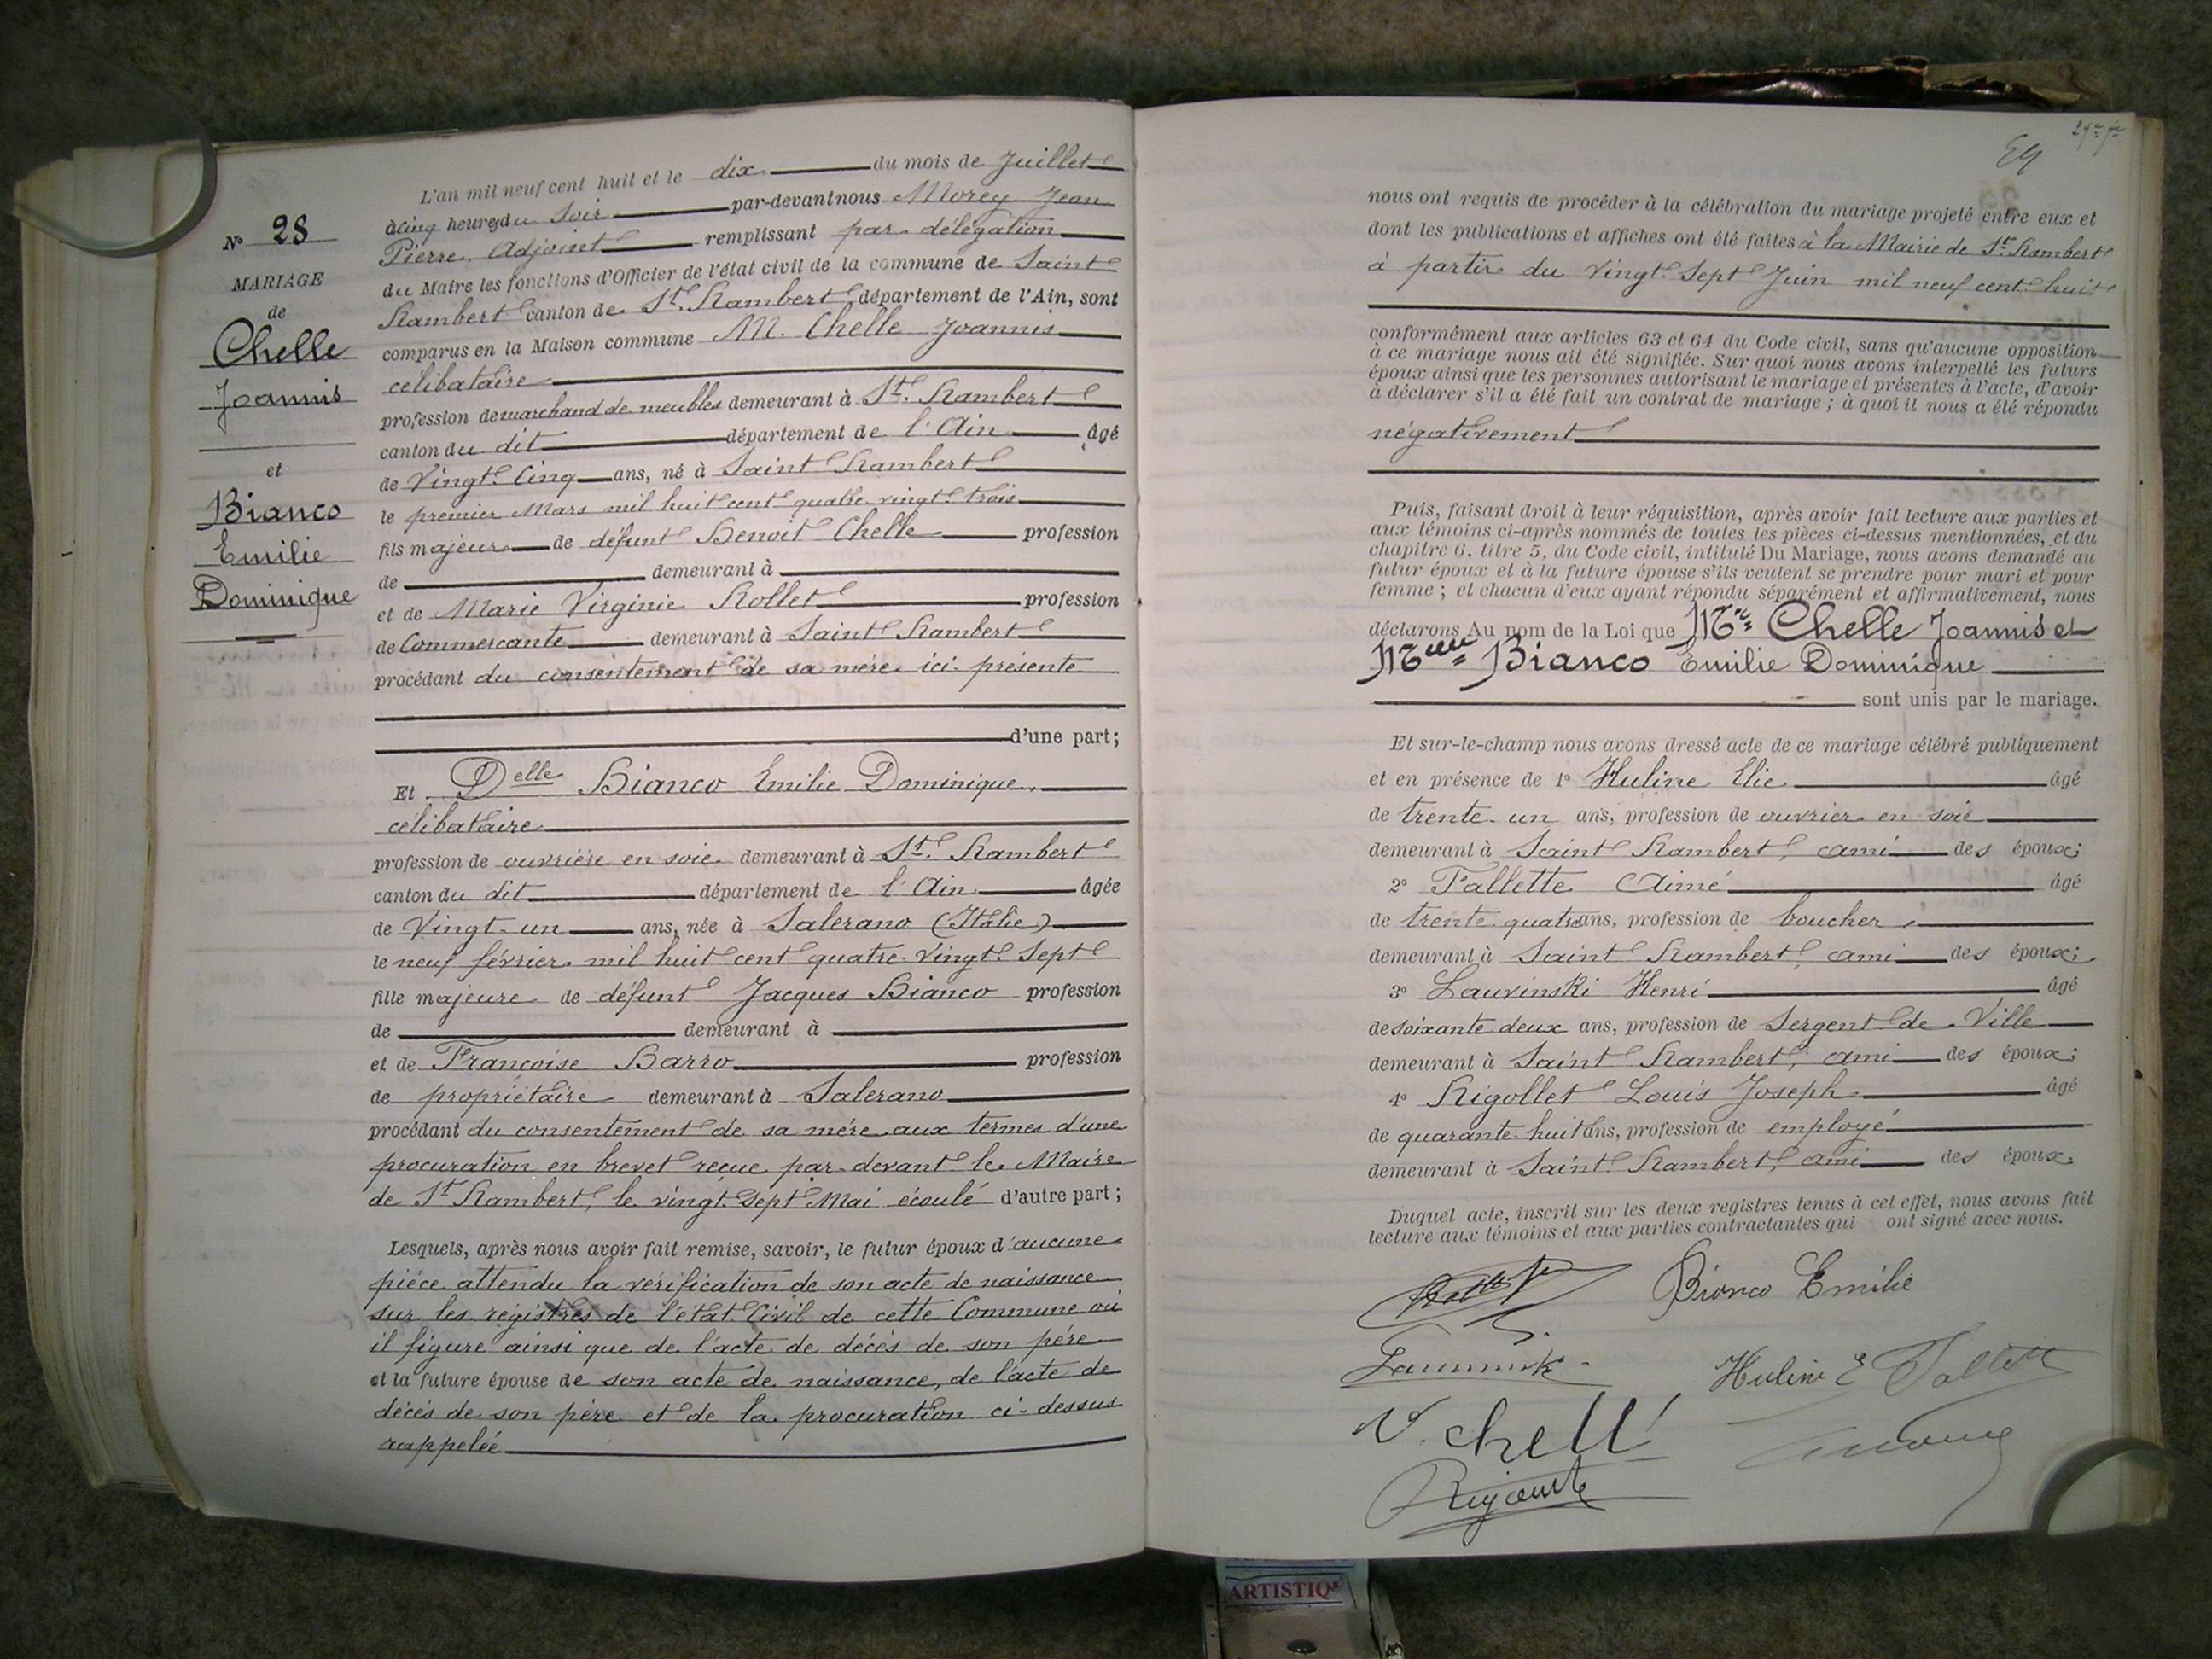 N° 28
MARIAGE
de
Chelle
Joannis
et
Bianco
Emilie
Dominique
L'an mil neuf cent huit et le dix du mois de Juillet
à cinq heures du Soir par-devant nous Morey Jean
Pierre, Adjoint remplissant par délégation
du Maire les fonctions d'Officier de l'état civil de la commune de Saint
Rambert canton de St. Rambert département de l'Ain, sont
comparus en la Maison commune M. Chelle Joannis
célibataire
profession de marchand de meubles demeurant à St. Rambert
canton du dit département de l'Ain âgé
de Vingt Cinq ans, né à Saint Rambert
le premier Mars mil huit cent quatre vingt trois
fils majeur de défunt Benoit Chelle profession
de demeurant à
et de Marie Virginie Rollet profession
de Commercante demeurant à Saint Rambert
procédant du consentement de sa mère ici présente
d'une part;
Et Delle Bianco Emilie Dominique
célibataire
profession de ouvrière en soie demeurant à St. Rambert
canton du dit département de l'Ain âgée
de Vingt-un ans, née à Salerano (Italie)
le neuf février mil huit cent quatre-vingt Sept
fille majeure de défunt Jacques Bianco profession
de demeurant à
et de Françoise Barro profession
de propriétaire demeurant à Salerano
procédant du consentement de sa mére aux termes d'une
procuration en brevet reçue par devant le Maire
de St Rambert, le vingt Sept Mai écoulé d'autre part;
Lesquels, après nous avoir fait remise, savoir, le futur époux d'aucune
pièce attendu la vérification de son acte de naissance
sur les régistres de l'état Civil de cette Commune où
il figure ainsi que de l'acte de décès de son père
et la future épouse de son acte de naissance, de l'acte de
décès de son père et de la procuration ci-dessus
rappelée
59
nous ont requis de procéder à la célébration du mariage projeté entre eux et
dont les publications et affiches ont été faites à la Mairie de St. Rambert
à partir du Vingt Sept Juin mil neuf cent huit
conformément aux articles 63 et 64 du Code civil, sans qu'aucune opposition
à ce mariage nous ait été signifiée. Sur quoi nous avons interpellé les futurs
époux ainsi que les personnes autorisant le mariage et présentes à l'acte, d'avoir
à déclarer s'il a été fait un contrat de mariage; à quoi il nous a été répondu
négativement
Puis, faisant droit à leur réquisition, après avoir fait lecture aux parties et
aux témoins ci-après nommés de toutes les pièces ci-dessus mentionnées, et du
chapitre 6, titre 5, du Code civil, intitulé Du Mariage, nous avons demandé au
futur époux et à la future épouse s'ils veulent se prendre pour mari et pour
femme; et chacun d'eux ayant répondu séparément et affirmativement, nous
déclarons Au nom de la Loi que Mr Chelle Joannis et
Melle Bianco Emilie Dominique
sont unis par le mariage.
Et sur-le-champ nous avons dressé acte de ce mariage célébré publiquement
et en présence de 1° Huline Elie âgé
de trente-un ans, profession de ouvrier en soie
demeurant à Saint Rambert, ami des époux;
2° Fallette Aimé âgé
de trente quatre ans, profession de boucher
demeurant à Saint Rambert, ami des époux;
3° Lauvinski Henri âgé
de soixante deux ans, profession de Sergent de Ville
demeurant à Saint Rambert, ami des époux;
4° Rigollet Louis Joseph âgé
de quarante huit ans, profession de employé
demeurant à Saint Rambert, ami des époux.
Duquel acte, inscrit sur les deux registres tenus à cet effet, nous avons fait
lecture aux témoins et aux parties contractantes qui ont signé avec nous.
Bianco Emilie
Huline E
V. Chell
ARTISTIQ